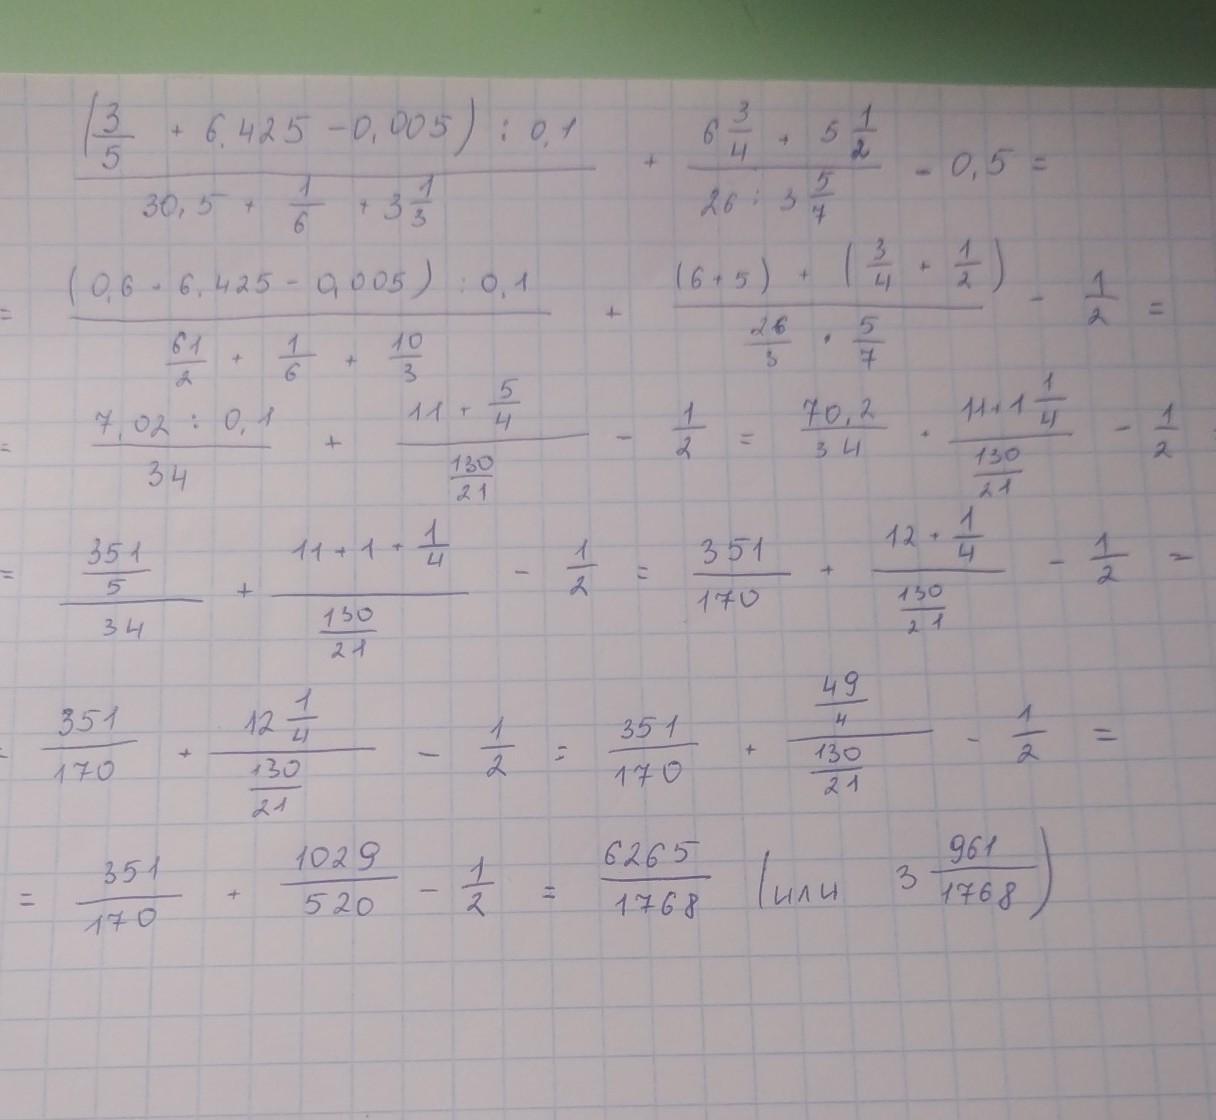 (3/5 + 6,425 - 0,005) : 0,1 / 30,5 + 1/6 + 3 1/3 + 6 3/4 + 5 1/2 / 26 : 3 5/7 - 0,5 =
= (0,6 + 6,425 - 0,005) : 0,1 / 61/2 + 1/6 + 10/3 + (6 + 5) + (3/4 + 1/2) / 26/3 · 5/7 - 1/2 =
= 7,02 : 0,1 / 34 + 11 + 5/4 / 130/21 - 1/2 = 70,2 / 34 + 11 + 1 1/4 / 130/21 - 1/2
= 351/5 / 34 + 11 + 1 + 1/4 / 130/21 - 1/2 = 351/170 + 12 + 1/4 / 130/21 - 1/2 =
= 351/170 + 12 1/4 / 130/21 - 1/2 = 351/170 + 49/4 / 130/21 - 1/2 =
= 351/170 + 1029/520 - 1/2 = 6265/1768 (или 3 961/1768)